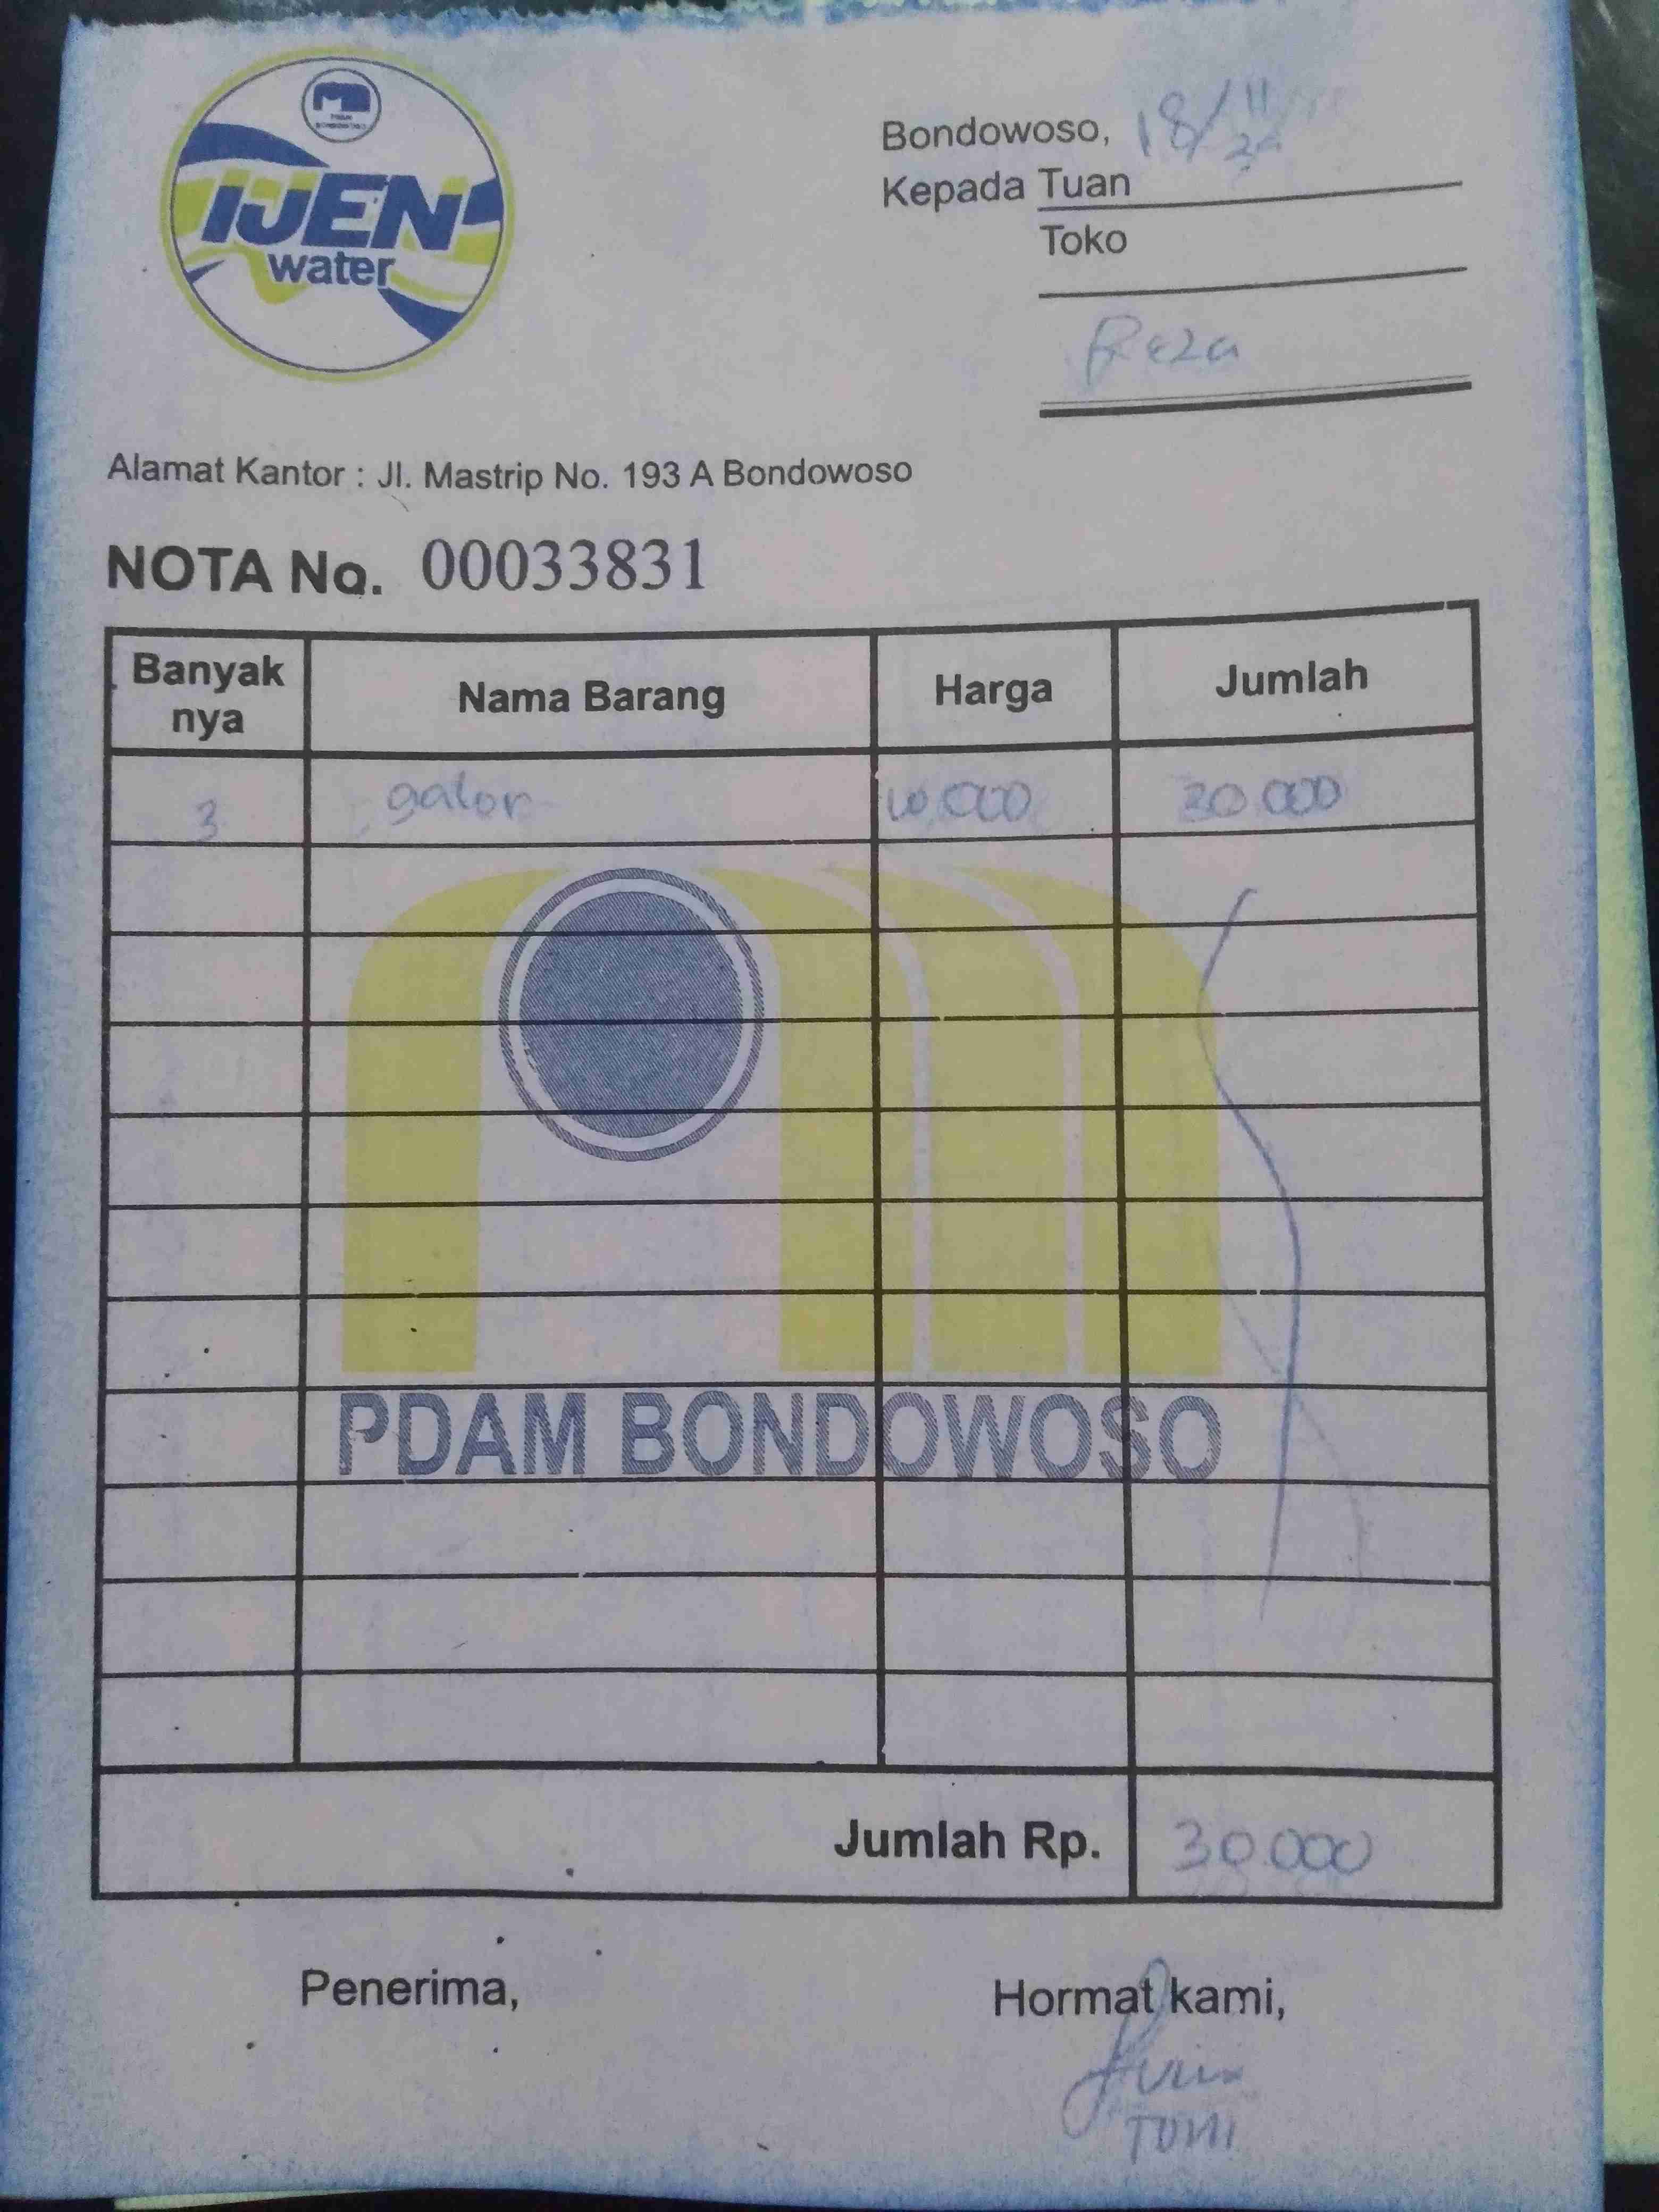 IJEN
water
Bondowoso, 18/11
Kepada Tuan
Toko
Reza
Alamat Kantor : Jl. Mastrip No. 193 A Bondowoso
NOTA No. 00033831
Banyak nya Nama Barang Harga Jumlah
3 galon 10.000 30 000
PDAM BONDOWOSO
Jumlah Rp. 30.000
Penerima, Hormat kami,
TOMI